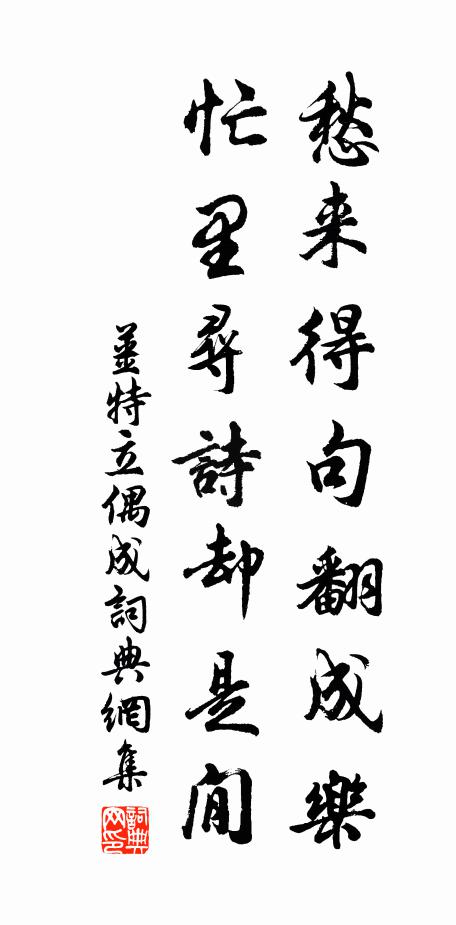 愁来得句翻成樂
忙里尋詩却是閒
姜特立偶成詞典網集
詞典网印